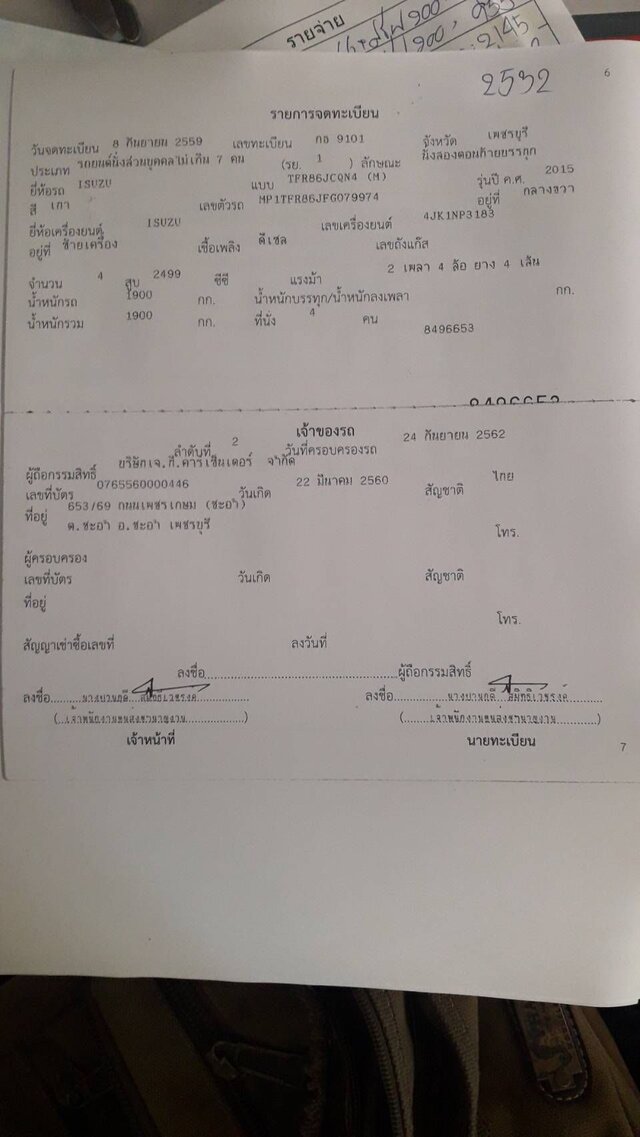 รายจ่าย
2532
6
รายการจดทะเบียน
วันจดทะเบียน 8 กันยายน 2559 เลขทะเบียน กธ 9101 จังหวัด เพชรบุรี
ประเภท รถยนต์นั่งส่วนบุคคลไม่เกิน 7 คน (รย. 1 ) ลักษณะ นั่งสองตอนท้ายบรรทุก
ยี่ห้อรถ ISUZU แบบ TFR86JCQN4 (M) รุ่นปี ค.ศ. 2015
สี เทา เลขตัวรถ MP1TFR86JFG079974 อยู่ที่ กลางขวา
ยี่ห้อเครื่องยนต์ ISUZU เลขเครื่องยนต์ 4JK1NP3183
อยู่ที่ ซ้ายเครื่อง เชื้อเพลิง ดีเซล เลขถังแก๊ส
จำนวน 4 สูบ 2499 ซีซี แรงม้า 2 เพลา 4 ล้อ ยาง 4 เส้น
น้ำหนักรถ 1900 กก. น้ำหนักบรรทุก/น้ำหนักลงเพลา กก.
น้ำหนักรวม 1900 กก. ที่นั่ง 4 คน
8496653
8496653
เจ้าของรถ
ลำดับที่ 2 วันที่ครอบครองรถ 24 กันยายน 2562
ผู้ถือกรรมสิทธิ์ บริษัทเจ.ที.คาร์เซ็นเตอร์ จำกัด
เลขที่บัตร 0765560000446 วันเกิด 22 มีนาคม 2560 สัญชาติ ไทย
ที่อยู่ 653/69 ถนนเพชรเกษม (ชะอำ)
ต.ชะอำ อ.ชะอำ เพชรบุรี โทร.
ผู้ครอบครอง
เลขที่บัตร วันเกิด สัญชาติ
ที่อยู่
โทร.
สัญญาเช่าซื้อเลขที่ ลงวันที่
ลงชื่อ ผู้ถือกรรมสิทธิ์
ลงชื่อ ลงชื่อ
(เจ้าพนักงานขนส่งชำนาญงาน) (เจ้าพนักงานขนส่งชำนาญงาน)
เจ้าหน้าที่ นายทะเบียน
7